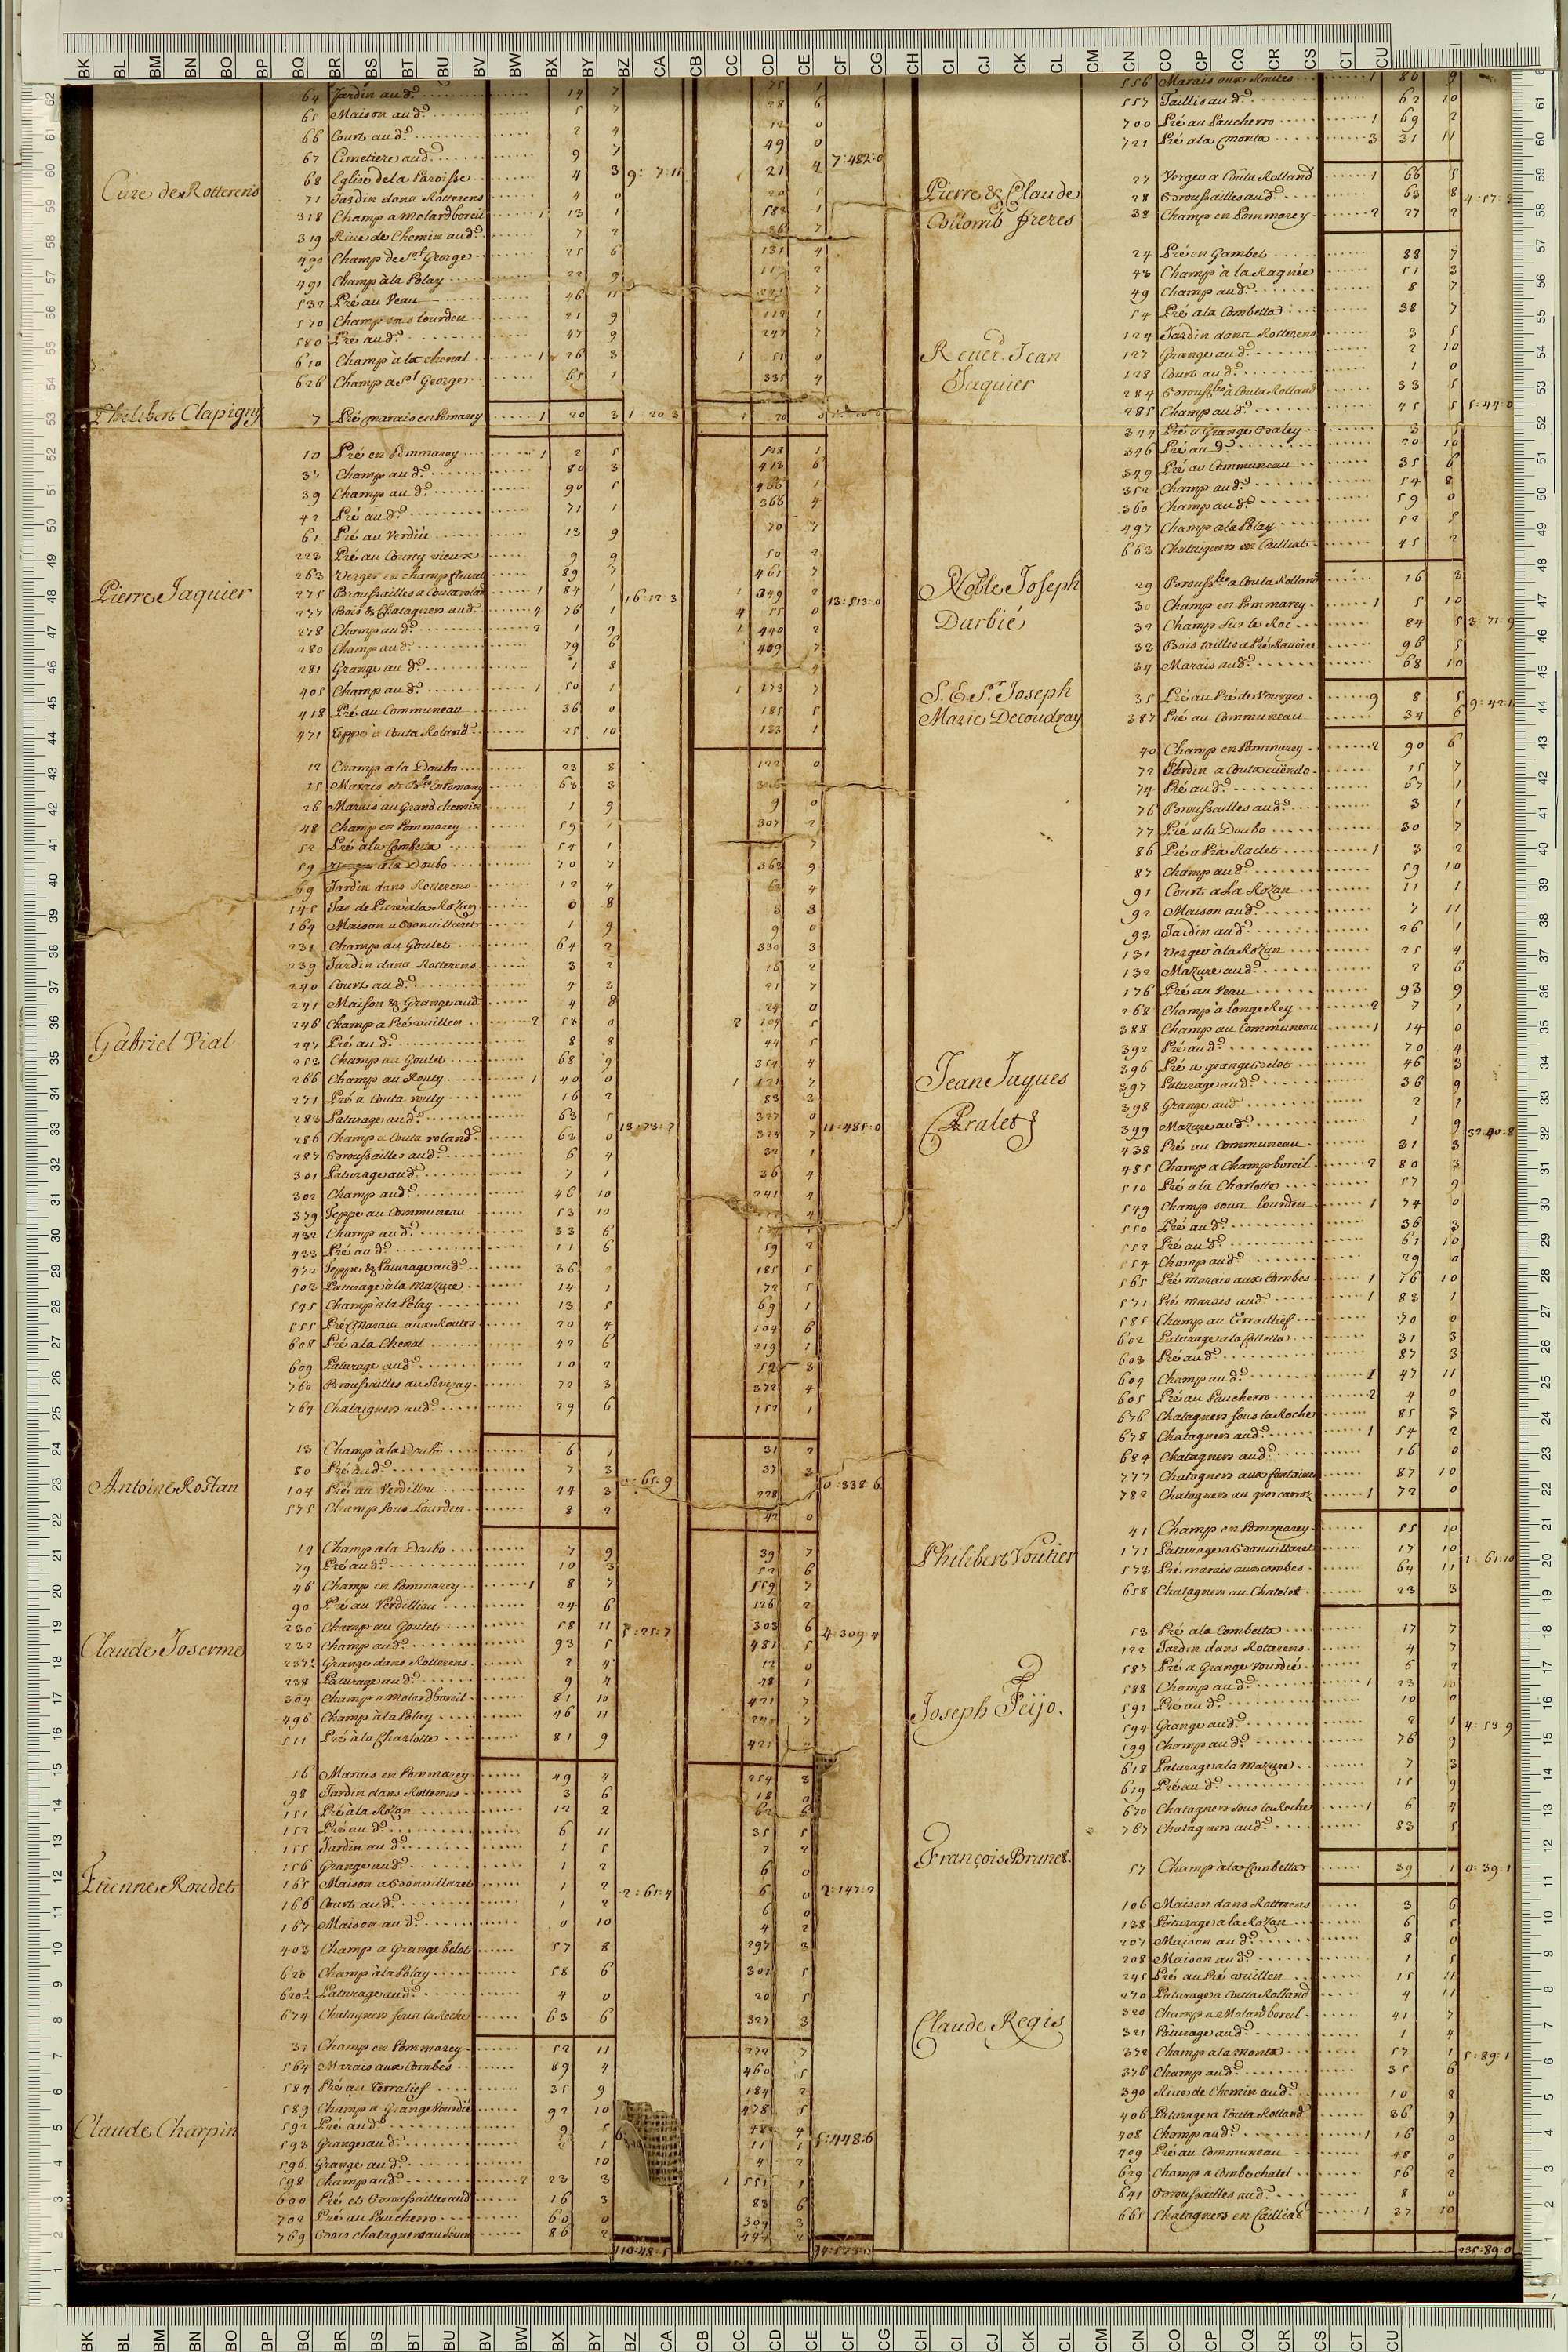 64 Jardin aud.o 14 7
65 Maison aud.o 5 7
66 Court aud.o 2 4
67 Cimetiere aud.o 9 7
Cure de Rotterens
68 Eglise de la Paroisse 4 3 9: 7:11 21 4 7:482:0
71 Jardin dans Rotterens 4 0
318 Champ a Molardboreil 1 13 1 583 1
319 Rive de Chemin aud.o 7 2
490 Champ de S.t George 25 6 131 4
491 Champ à la Polay 22 9
532 Pré au Veau 46 11
570 Champ sous Lourden 21 9 112 1
580 Pré aud.o 47 9 247 7
610 Champ à la Chenal 1 26 3 1 51 0
626 Champ a S.t George 65 1 335 4
Philibert Clapigny
7 Pré marais en Pomarey 1 20 3 1 20 3 1 20 0
10 Pré en Pommarey 1 2 5 528 1
37 Champ aud.o 80 3 413 6
39 Champ aud.o 90 5 466 1
42 Pré aud.o 71 1 366 4
61 Pré au Verdin 13 9 70 7
223 Pré au Courty vieux 9 9 50 2
263 Verger en champ fleuret 89 7 461 7
Pierre Jaquier
275 Broussailles a Couta rolan 1 84 1 16:12 3 1 349 2 13:513:0
277 Bois & Chatagners aud. 4 76 1 4 55 0
278 Champ aud.o 2 1 9 1 440 2
280 Champ au d.o 79 6 409 7
281 Grange au d.o 1 8
405 Champ au d.o 1 50 1 1 273 7
418 Pré au Communeau 36 0 185 5
471 Teppe à Couta Roland 25 10 133 1
12 Champ a la Doubo 23 8 122 0
15 Marais et B.les en Pomarey 63 3
26 Marais au Grand chemin 1 9 9 0
48 Champ en Pommarey 59 1 307 2
52 Pré à la Combetta 54 1
59 a la Doubo 70 7 363 9
69 Jardin dans Rotterens 12 4 62 4
145 Tas de Piere à la Rozan 0 8 3 3
164 Maison a Bonvillaret 1 9 9 0
231 Champ au Goulet 64 2 330 3
239 Jardin dans Rotterens 3 2 16 2
240 Court au d.o 4 3 21 7
241 Maison & Grange aud. 4 8 24 0
Gabriel Vial
246 Champ a Pré vuillen 2 53 0 2 104 5
247 Pré au d.o 8 8 44 5
253 Champ au Goulet 68 9 354 4
266 Champ au Routy 1 40 0 1 121 7
271 Pré a Couta routy 16 2 83 3
283 Paturage au d.o 63 5 13:73:7 327 0 11:485:0
286 Champ a Couta roland 63 0 324 7
287 Broussailles au d.o 6 4 32 1
301 Paturage au d.o 7 1 36 4
302 Champ aud.o 46 10 241 4
379 Teppe au Communeau 53 10
432 Champ au d.o 33 6
433 Pré au d.o 11 6 59 2
472 Teppe & Paturage aud.o 36 185 5
503 Paturage à la Mazure 14 1 72 5
545 Champ à la Polay 13 5 69 1
555 Pré Marais aux Routes 20 4 104 6
608 Pré a la Chenal 42 6 219 1
609 Paturage au d.o 10 2 52 3
760 Broussailles au Sevezay 72 3 372 4
764 Chataigners aud.o 29 6 152 1
13 Champ à la Doubo 6 1 31 2
80 Pré aud.o 7 3 37 3
Antoine Rostan
104 Pré au Verdillou 44 3 0:65:9 228 0:338 6
575 Champ sous Lourden 8 2 42 0
14 Champ a la Doubo 7 9 39 7
79 Pré au d.o 10 3 52 6
46 Champ en Pommarey 1 8 7 559 7
90 Pré au Verdillou 24 6 126 2
230 Champ au Goulet 58 11 5:25:7 303 6 4:309:4
Claude Joserme
232 Champ au d.o 93 5 481 5
237½ Grange dans Rotterens 2 4 12 0
238 Paturage au d.o 9 4 48 1
304 Champ a Molardboreil 81 10 421 7
496 Champ à la Polay 46 11
511 Pré à la Charlotte 81 9
16 Marais en Pommarey 49 4 254 3
98 Jardin dans Rotterens 3 6 18 0
151 Pré à la Rozan 12 2 62 6
152 Pré au d.o 6 11 35 5
155 Jardin au d.o 1 5 7 2
156 Grange aud.o 1 2 6 0
Etienne Roudet
165 Maison a Bonvillaret 1 2 2:61:4 6 0 2:147:2
166 Court au d.o 1 2 6 0
167 Maison au d.o 0 10 4 2
403 Champ a Grange belot 57 8 297 3
620 Champ à la Polay 58 6 301 5
620½ Paturage au d.o 4 0 20 5
674 Chatagners sous la Roche 63 6 327 3
37 Champ en Pommarey 52 11 272 7
564 Marais aux Combes 89 4 460 5
584 Pré au Terralief 35 9 184 2
589 Champ a Grange Vourdié 92 10 478 5
Claude Charpin
592 Pré au d.o 9 5 48 4 5:448:6
593 Grange au d.o 2 1 11 1
596 Grange au d.o 10 4 2
598 Champ aud.o 2 23 3 1 551 1
600 Pré et Broussailles aud. 16 3 83 6
702 Pré au Paucherro 60 0 309 3
769 Bois chatagners au Seven 86 2 444 2
110:48:5 94:573:0
556 Marais aux Routes 1 80 9
557 Taillis au d.o 62 10
700 Pré au Paucherro 1 69 2
721 Pré a la Monta 3 31 11
Pierre & Claude
Collomb freres
27 Verger a Couta Rolland 1 66 5
28 Broussailles aud.o 63 8 4:57:3
38 Champ en Pommarey 2 27 2
24 Pré en Gambet 88 7
43 Champ à la Ragnée 51 3
49 Champ au d.o 8 7
54 Pré a la Combetta 38 7
124 Jardin dans Rotterens 3 5
Reuer.d Jean
Jaquier
127 Grange au d.o 2 10
128 Court au d.o 1 0
284 Brouss.les à Couta Rolland 33 5
285 Champ au d.o 45 5 5:44:0
344 Pré a Grange Balley 3 5
346 Pré au d.o 20 10
349 Pré au Communeau 35 6
352 Champ au d.o 54 8
360 Champ au d.o 59 0
497 Champ a la Polay 52 5
663 Chataigners en Cailliat 45 2
Noble Joseph
Darbié
29 Brouss.les a Couta Rolland 16 3
30 Champ en Pommarey 1 5 10
32 Champ sur le Roc 84 5 3:71:9
33 Bois taillis a Pré Ravoire 96 5
34 Marais au d.o 68 10
S. E. S.r Joseph
Marie Decoudray
35 Pré au Pré de Vourges 9 8 5 9:42:11
387 Pré au Communeau 34 6
40 Champ en Pommarey 2 90 6
72 Jardin a Couta ciendo 15 7
74 Pré au d.o 67 1
76 Broussailles aud.o 3 1
77 Pré a la Doubo 30 7
86 Pré a Pra Raclet 1 3 2
87 Champ au d.o 59 10
91 Court a La Rozan 11 1
92 Maison aud.o 7 11
93 Jardin au d.o 26 1
131 Verger à la Rozan 25 4
132 Mazure au d.o 2 6
176 Pré au Veau 93 9
268 Champ à longe Rey 2 7 1
388 Champ au Communeau 1 14 0
392 Pré au d.o 70 4
Jean Jaques
Pralet
396 Pré a grange belot 46 3
397 Paturage au d.o 36 9
398 Grange aud 2 1
399 Mazure au d.o 1 9 32:40:8
438 Pré au Communeau 31 3
485 Champ a Champ boreil 2 80 3
510 Pré a la Charlotte 57 9
549 Champ sous Lourden 1 74 0
550 Pré au d.o 36 3
552 Pré au d.o 61 10
554 Champ aud.o 29 0
565 Pré marais aux Combes 1 76 10
571 Pré marais aud.o 1 83 1
585 Champ au Terraillief 70 0
602 Paturage a la Colletta 31 3
603 Pré au d.o 87 3
604 Champ au d.o 1 47 11
605 Pré au Paucherro 2 4 0
676 Chatagners sous la Roche 85 3
678 Chatagners aud.o 1 54 2
684 Chatagners aud.o 16 0
777 Chatagners aux fontaines 87 10
782 Chatagners au gros carroz 1 72 0
Philibert Voutier
41 Champ en Pommarey 55 10
171 Paturage a Bonvillaret 17 10 1:61:10
573 Pré marais aux combes 64 11
658 Chatagners au Chatelet 23 3
Joseph Feijo.
53 Pré a la Combetta 17 7
122 Jardin dans Rotterens 4 7
587 Pré a Grange Vourdié 6 2
588 Champ au d.o 1 23 10
591 Pré au d.o 10 0
594 Grange aud.o 2 1 4:53 9
599 Champ au d.o 76 9
618 Paturage a la Mazure 7 3
619 Pré au d.o 15 9
670 Chatagners sous la Roche 1 6 4
767 Chatagners aud.o 83 5
François Brunet
57 Champ à la Combetta 39 1 0:39:1
Claude Regis
106 Maison dans Rotterens 3 6
138 Paturage a la Rozan 6 5
207 Maison au d.o 8 0
208 Maison au d.o 1 5
245 Pré au Pré vuillen 15 11
270 Paturage a Couta Rolland 4 11
320 Champ a Molardboreil 41 7
321 Paturage au d.o 1 4
372 Champ a la Monta 57 1 5:89:1
376 Champ au d.o 35 6
390 Rives de Chemin aud.o 10 8
406 Paturage a Couta Rolland 36 9
408 Champ au d.o 1 16 0
409 Pré au Communeau 48 0
629 Champ a Combe chatel 56 2
641 Broussailles au d.o 8 0
665 Chatagners en Cailliat 1 37 10
235:89:0